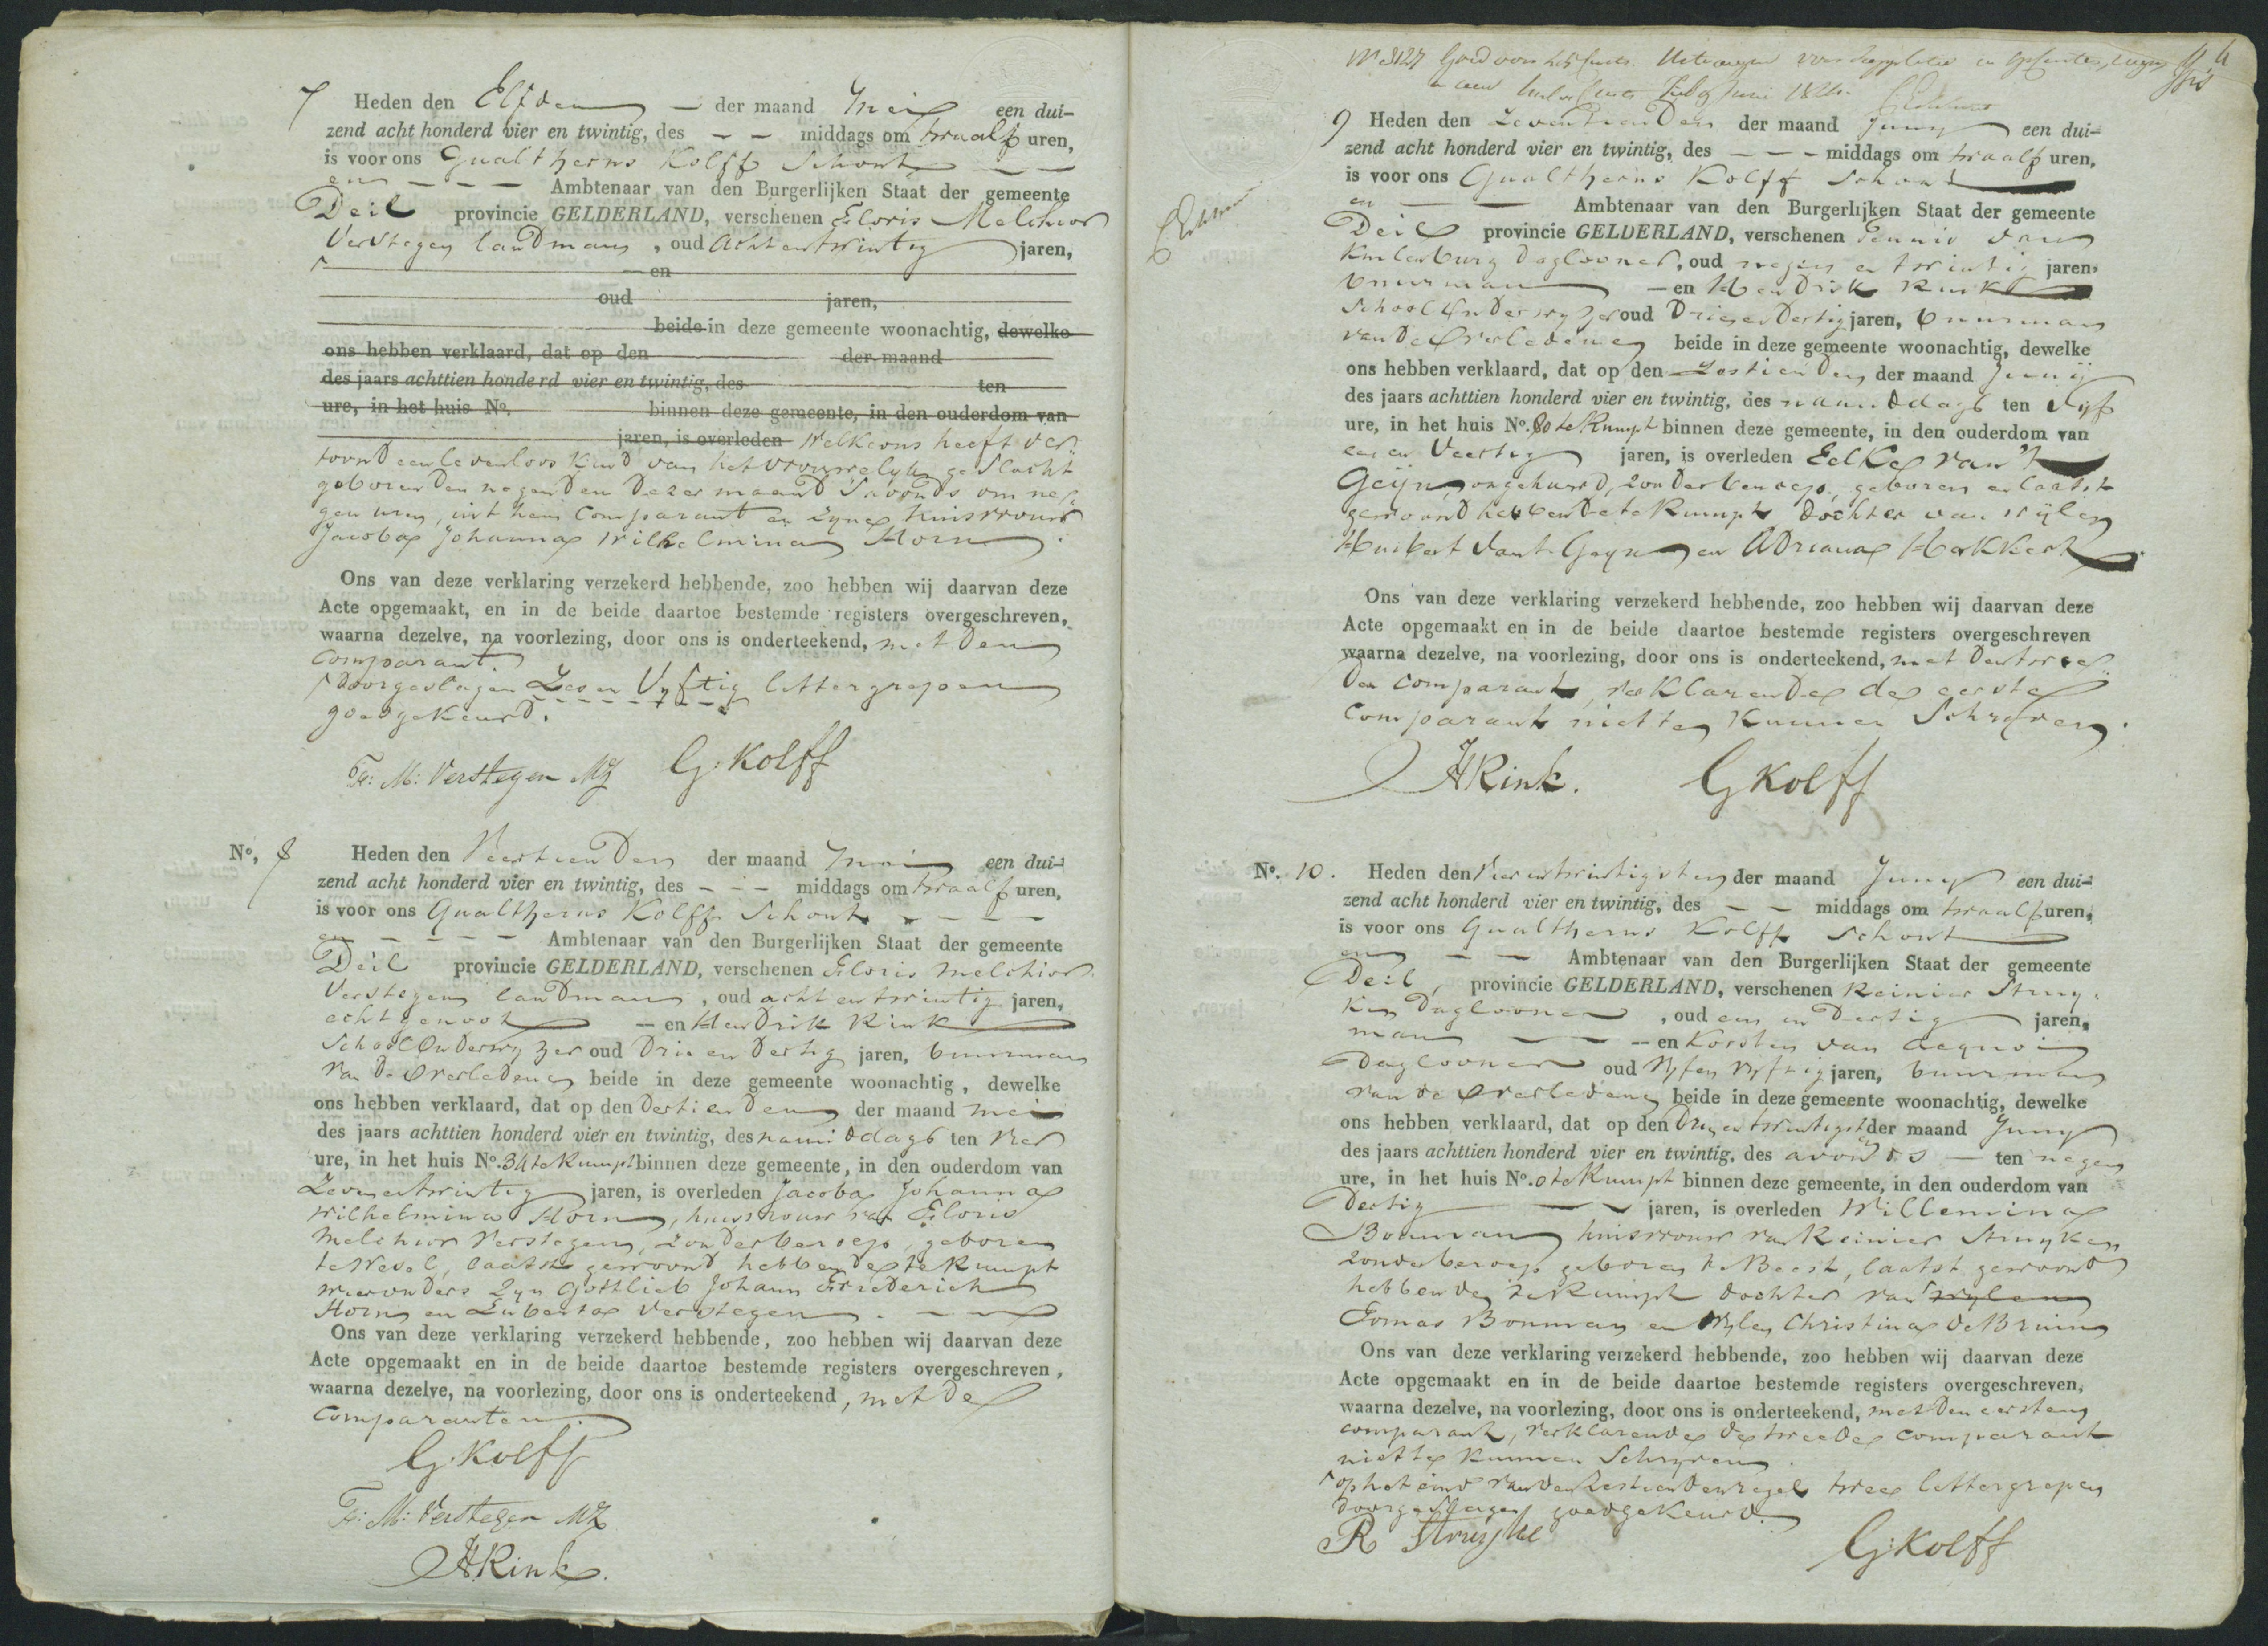 7 Heden den Elfden — der maand Mei een dui-
zend acht honderd vier en twintig, des — — middags om twaalf uren,
is voor ons Gualtherus Kolff Schout — —
en — — — Ambtenaar van den Burgerlijken Staat der gemeente
Deil provincie GELDERLAND, verschenen Floris Melchior
Verstegen landman, oud acht en twintig jaren,
en
oud jaren,
beide in deze gemeente woonachtig, dewelke
ons hebben verklaard, dat op den der maand
des jaars achttien honderd vier en twintig, des ten
ure, in het huis No. binnen deze gemeente, in den ouderdom van
jaren, is overleden welke ons heeft ver
toond een levenloos kind van het vrouwelijk geslacht
geboren den negenden dezer maand 's avonds om ne
gen uren, uit hem Comparant en zyne huisvrouw
Jacoba Johanna Wilhelmina Horn.
Ons van deze verklaring verzekerd hebbende, zoo hebben wij daarvan deze
Acte opgemaakt, en in de beide daartoe bestemde registers overgeschreven,
waarna dezelve, na voorlezing, door ons is onderteekend, met den
comparant.
doorgeslagen Zes en Vyftig lettergrepen
goedgekeurd.
Fs: M: Verstegen MZ G: Kolff
No. 8 Heden den Veertienden der maand Mei een dui-
zend acht honderd vier en twintig, des - - - middags om twaalf uren,
is voor ons Gualtherus Kolff Schout - - - -
en - - - - Ambtenaar van den Burgerlijken Staat der gemeente
Deil provincie GELDERLAND, verschenen Floris Melchior
Verstegen landman, oud acht en twintig jaren,
echtgenoot — en Hendrik Rink
School Onderwyzer oud Drie en Dertig jaren, buurman
van de Overledene beide in deze gemeente woonachtig, dewelke
ons hebben verklaard, dat op den dertienden der maand mei
des jaars achttien honderd vier en twintig, des namiddags ten vier
ure, in het huis No. 34 te Rumpt binnen deze gemeente, in den ouderdom van
Zeven en twintig jaren, is overleden Jacoba Johanna
Wilhelmina Horn, huisvrouw van Floris
Melchior Verstegen, zonder beroep, geboren
te Wesel, laatst gewoond hebbende te Rumpt
wier ouders zyn Gottlieb Johann Friederich
Horn en Luberta Verstegen. — —
Ons van deze verklaring verzekerd hebbende, zoo hebben wij daarvan deze
Acte opgemaakt en in de beide daartoe bestemde registers overgeschreven,
waarna dezelve, na voorlezing, door ons is onderteekend, met de
Comparanten.
G: Kolff
Fs: M: Verstegen MZ
HRink.
No 3127 Goed voor
9 Heden den Zeventienden der maand Juny een dui-
zend acht honderd vier en twintig, des - - - middags om twaalf uren,
is voor ons Gualtherus Kolff Schout
en — Ambtenaar van den Burgerlijken Staat der gemeente
Deil provincie GELDERLAND, verschenen Teunis van
Kuilenburg Daglooner, oud negen en twintig jaren,
buurman — en Hendrik Rink
School Onderwyzer oud Drie en Dertig jaren, buurman
van de Overledene beide in deze gemeente woonachtig, dewelke
ons hebben verklaard, dat op den Zestienden der maand Junij
des jaars achttien honderd vier en twintig, des namiddags ten vyf
ure, in het huis No. 80 te Rumpt binnen deze gemeente, in den ouderdom van
een en Veertig jaren, is overleden Eelke van 't
Geijn, ongehuwd, zonder beroep, geboren en laatst
gewoond hebbende te Rumpt dochter van wijlen
Huibert van 't Geyn en Adriana Hakkert.
Ons van deze verklaring verzekerd hebbende, zoo hebben wij daarvan deze
Acte opgemaakt en in de beide daartoe bestemde registers overgeschreven
waarna dezelve, na voorlezing, door ons is onderteekend, met den twee
den comparant, verklarende de eerste
comparant niet te kunnen Schryven.
HRink. G Kolff
No. 10. Heden den Vier en twintigsten der maand Juny een dui-
zend acht honderd vier en twintig, des — — middags om twaalf uren,
is voor ons Gualtherus Kolff Schout
en — — Ambtenaar van den Burgerlijken Staat der gemeente
Deil, provincie GELDERLAND, verschenen Reinier Struy
ken Daglooner, oud een en Dertig jaren,
man — — en Korsten van Acquoi
Daglooner oud Vyf en Vyftig jaren, buurman
van de Overledene beide in deze gemeente woonachtig, dewelke
ons hebben verklaard, dat op den Drie en twintigsten der maand Juny
des jaars achttien honderd vier en twintig, des avonds — ten negen
ure, in het huis No. 0 te Rumpt binnen deze gemeente, in den ouderdom van
Dertig — jaren, is overleden Willemina
Bouman huisvrouw van Reinier Struyken
zonder beroep geboren te Beest, laatst gewoond
hebbende te Rumpt dochter van wylen
Tomas Bouman en Wylen Christina de Bruin
Ons van deze verklaring verzekerd hebbende, zoo hebben wij daarvan deze
Acte opgemaakt en in de beide daartoe bestemde registers overgeschreven,
waarna dezelve, na voorlezing, door ons is onderteekend, met den eersten
comparant, verklarende de tweede comparant
niet te kunnen Schryven.
op het eind van den Zestienden regel twee lettergrepen
doorgeslagen goedgekeurd.
R Struyke G: Kolff